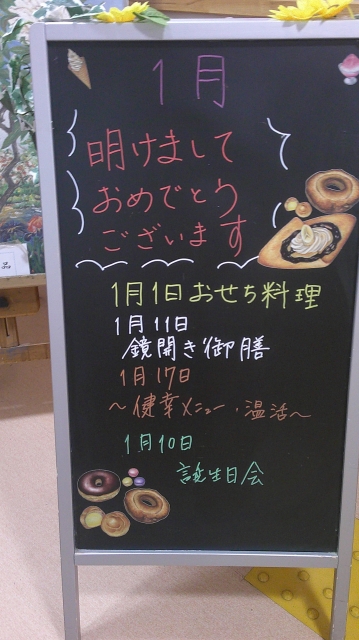 1月
明けまして
おめでとう
ございます
1月1日おせち料理
1月11日
鏡開き御膳
1月17日
～健幸メニュー・温活～
1月10日
誕生日会